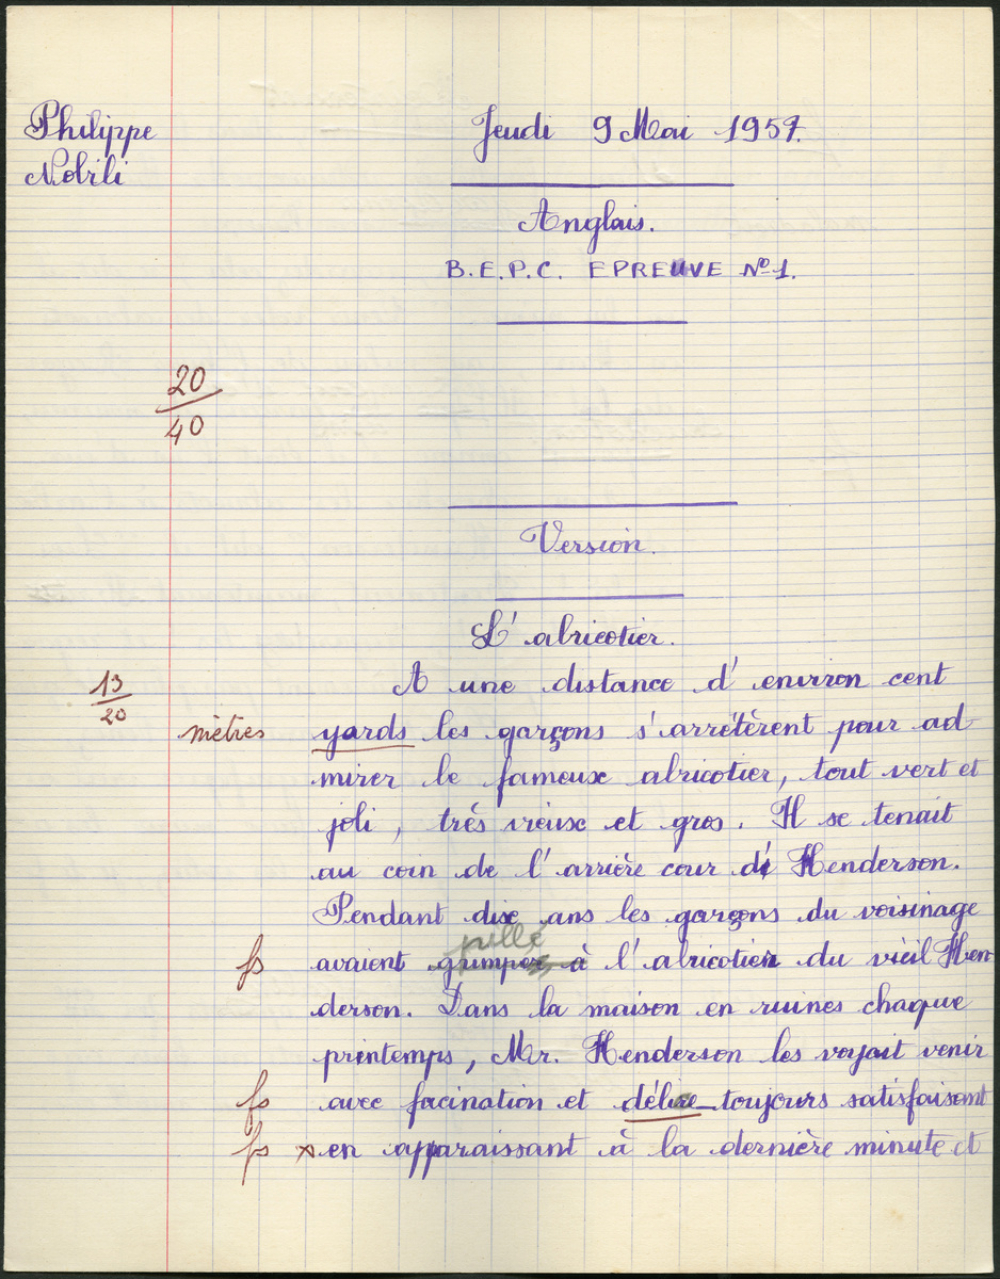 Philippe
Nobili
Jeudi 9 Mai 1957.
Anglais.
B.E.P.C. EPREUVE Nº1.
20
40
Version.
L'abricotier.
13
20
A une distance d'environ cent
mètres
yards les garçons s'arrétèrent pour ad
mirer le fameux abricotier, tout vert et
joli, très vieux et gros. Il se tenait
au coin de l'arrière cour de Henderson.
Pendant dix ans les garçons du voisinage
pillé
fs avaient grimper à l'abricotier du vieil Hen
derson. Dans la maison en ruines chaque
printemps, Mr. Henderson les voyait venir
fs avec facination et délice toujours satisfaisant
fs x en apparaissant à la dernière minute et